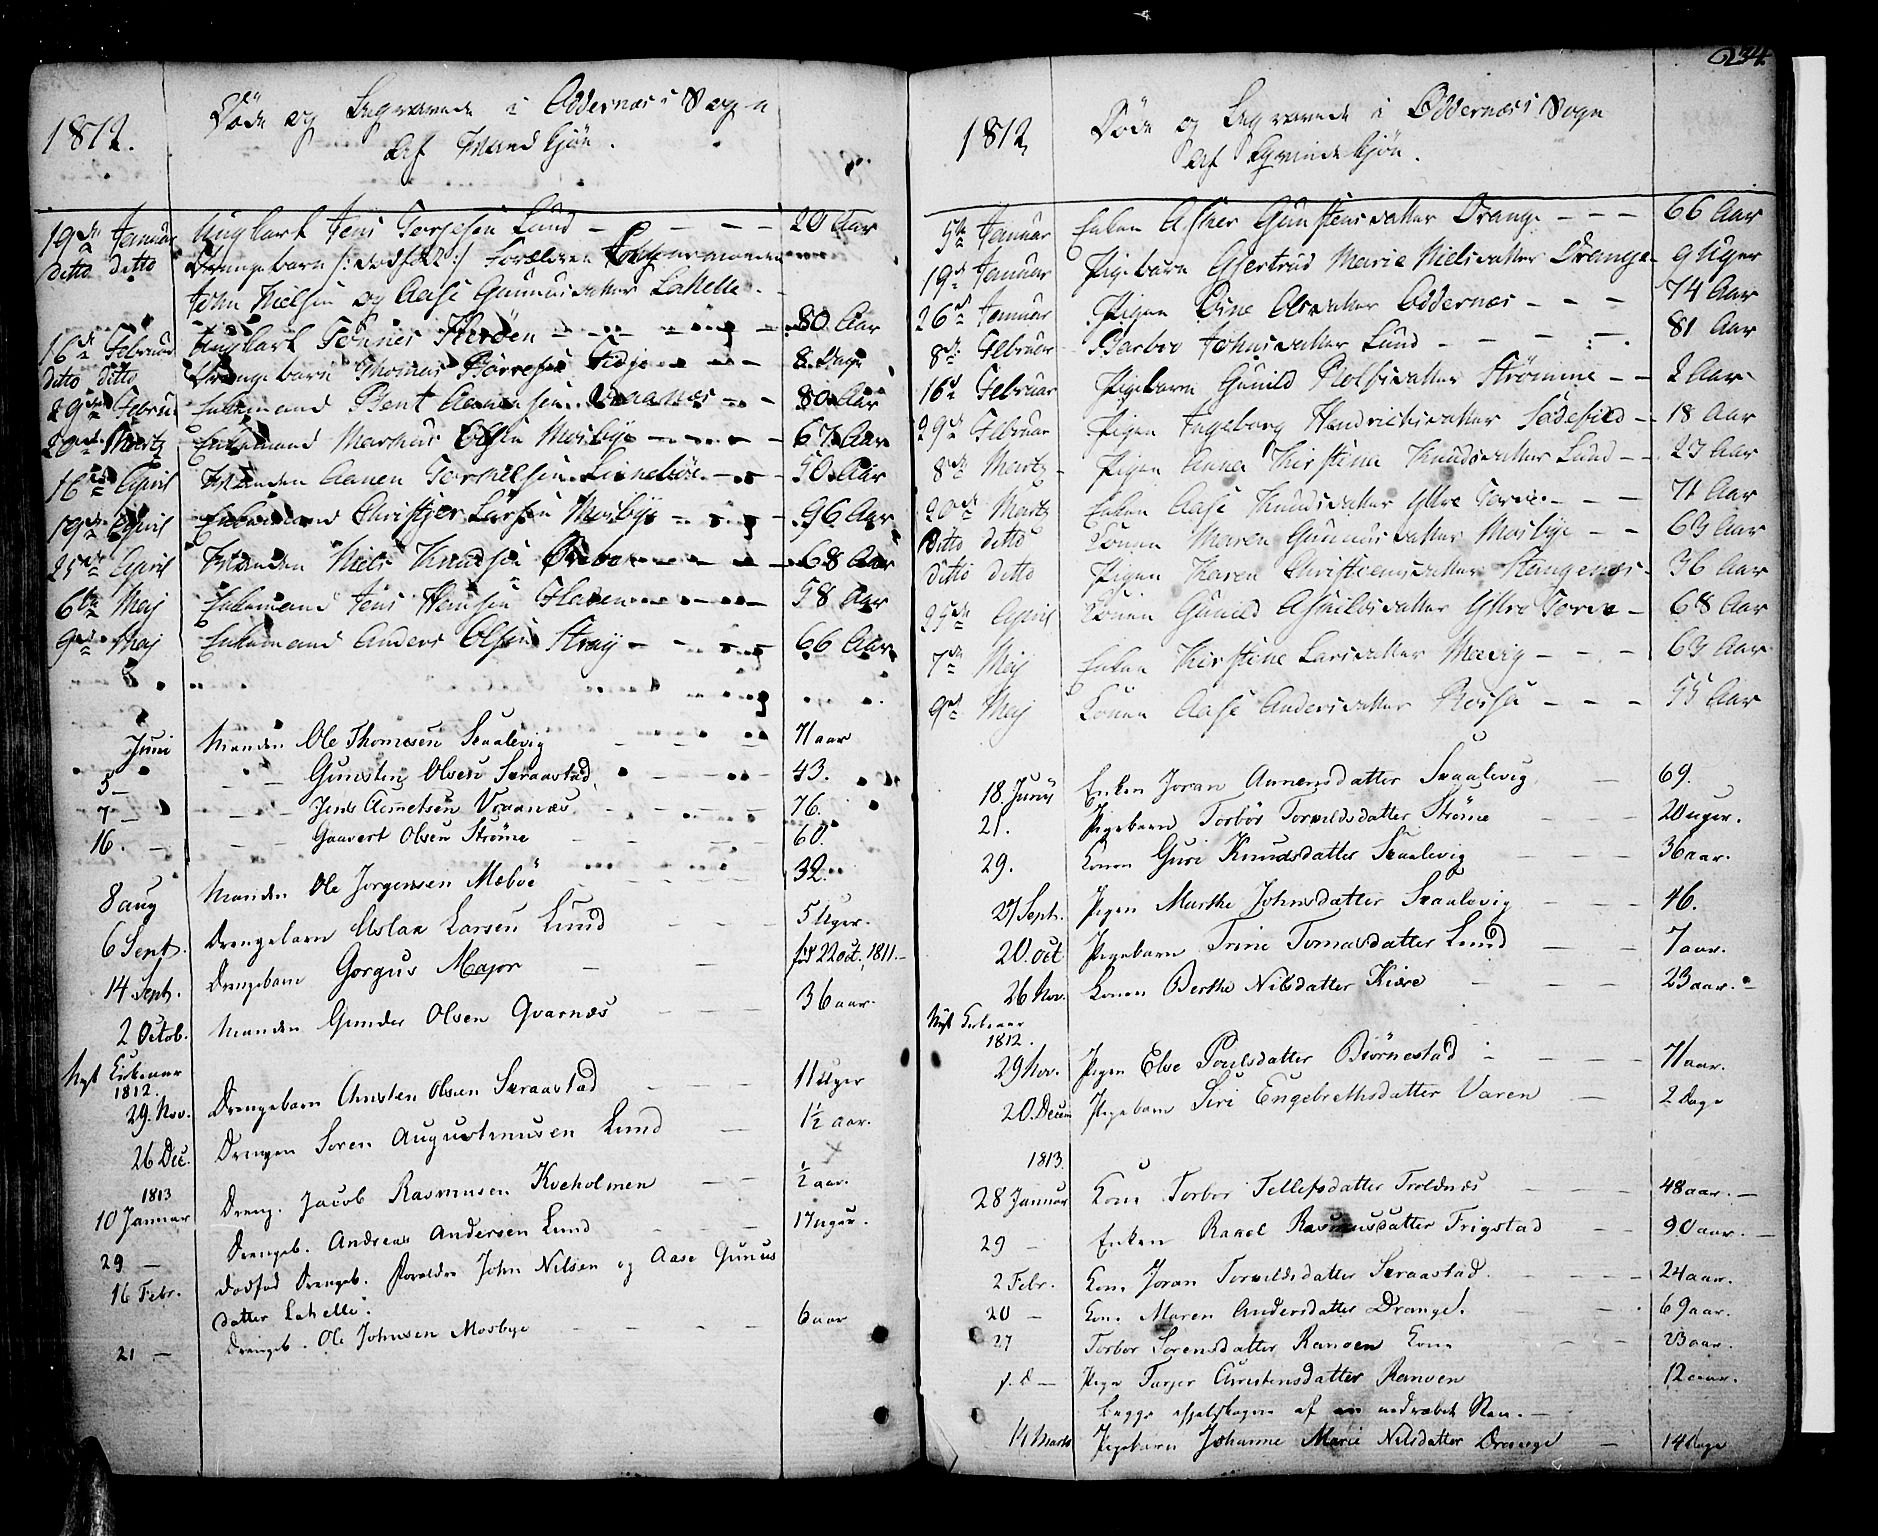 234.
1812.
Døde og Begravede i Oddernæs Sogn
Af Mandkjøn.
19de Januar Ungkarl Jens Torjesen Lund - - - 20 Aar
ditto ditto Drengebarn /: dødfød :/ Forældrene
John Nielsen og Aase Gunnusdatter Lahelle -
16de Februar Ungkarl Tønnes - - - 80 Aar
ditto ditto Drengebarn Thomas Børresen - - 8 Dage
29de Februar Enkemand Bent Aanensen Vraanæs - - 80 Aar
20de Martz Enkemand Marhus Olsen Mosbye - - - 67 Aar
16de April Manden Aanen Tormelsen Linnebøe - - 50 Aar
19de April Enkemand Christjer Larsen Mosbye - - - 96 Aar
25de April Manden Niels Knudsen - - - 68 Aar
6te Maj Enkemand Jens Hansen - - - 58 Aar
9de Maj Enkemand Anders Olsen Stray - - - 66 Aar
Juni Manden Ole Thomesen Skaalevig - - - 71 aar
5 - - - Gunsten Olsen Straastad - - - 43.
7 - - - Jens Aametsen Vraanæs - - - 76.
16. - - - Gaavert Olsen Strøme 60.
8 aug Manden Ole Jørgensen Mæbøe - - - 32.
6 Sept. Drengebarn Aslak Larsen Lund - - 5 Uger.
14 Sept. Drengebarn Gorgus Major - - fød 22 oct. 1811. -
2 Octob. Manden Gunder Olsen Qvarnæs - - - 36 aar.
Nyt Kirkeaar
1812.
29. Nov. Drengebarn Christen Olsen Straastad - - - 11 Uger
26 Dec. Drengen Søren Augustinusen Lund - 1½ aar.
1813
10 Januar Dreng. Jacob Rasmusen Kveholmen - - ½ aar.
29 - Drengeb. Andreas Andersen Lund - - - 17 uger.
16 Febr. Dødfød Drengeb. Forældre John Nilsen og Aase Gunus
datter Lahelle.
21 - Drengeb. Ole Johnsen Mosbye - - - 6 aar
1812,
Døde og Begravede i Oddernæs Sogn
Af Qvindekjøn.
5te Januar Enken Asher Gunstensdatter Drange - - - 66 Aar
19de Januar Pigebarn Gjertrud Marie Nielsdatter Drange - 9 Uger
26de Januar Pigen Olsdatter Oddernæs - - - 74 Aar
8de Februar Barbro Johnsdatter Lund - - - 81 Aar
16de Februar Pigebarn Gunild Rolfsdatter Strømme - - 2 Aar
29de Februar Pigen Ingeborg Hendrichsdatter - 18 Aar
8de Martz - Pigen Anne Kirstina Knudsdatter Lund - - 23 Aar
20de Martz Enken Aase Knudsdatter Ytre - - - 71 Aar
Ditto ditto Konen Maren Gunnusdatter Mosbye - - 69 Aar
ditto ditto Pigen Karen Christiensdatter Stangenæs - 36 Aar
25de April Konen Gunild Asnildsdatter Ytre - 68 Aar
7de Maj Enken Kirstene Larsdatter Mævig - - - 69 Aar
9de Maj Konen Aase Andersdatter - - - 55 Aar
18. Junij Enken Joran Annensdatter Skaalevig - 69.
21. Pigebarn Torbør Torvildsdatter Strøme - - 20 uger.
29. Konen Guri Knudsdatter Skaalevig - - - 36 aar.
27 Sept. Pigen Marthe Johnsdatter Skaalevig - - - 46.
20. oct Pigebarn Trine Tomasdatter Lund - - 7 aar.
26 Nov. Konen Berthe Nilsdatter Kiære - - - 23 aar. -
Nyt Kirkeaar
1812.
29 Nov. Pigen Else Poulsdatter Biørnestad - - - 71 aar.
20. Decem Pigebarn Siri Engebrethsdatter Varen - 2 Dage
1813.
28 Januar Kone Torbor Tellefsdatter Troldnæs - - - 48 aar. -
29 - Enken Raael Rasmusdatter Frigstad - 90 aar. -
2 Febr. Kone Joran Torvildsdatter Straastad. - - - 24 aar.
20 - Kone Maren Andersdatter Drangel. - - 69 aar.
27 Torbor Sorensdatter Ranoen Kone - - - 23 aar.
- Pige Turjer Christensdatter Ranoen 12 aar.
Begge af Ran. -
14 Marts Pigebarn Johanne Marie Nilsdatter Drange - 14 Dage